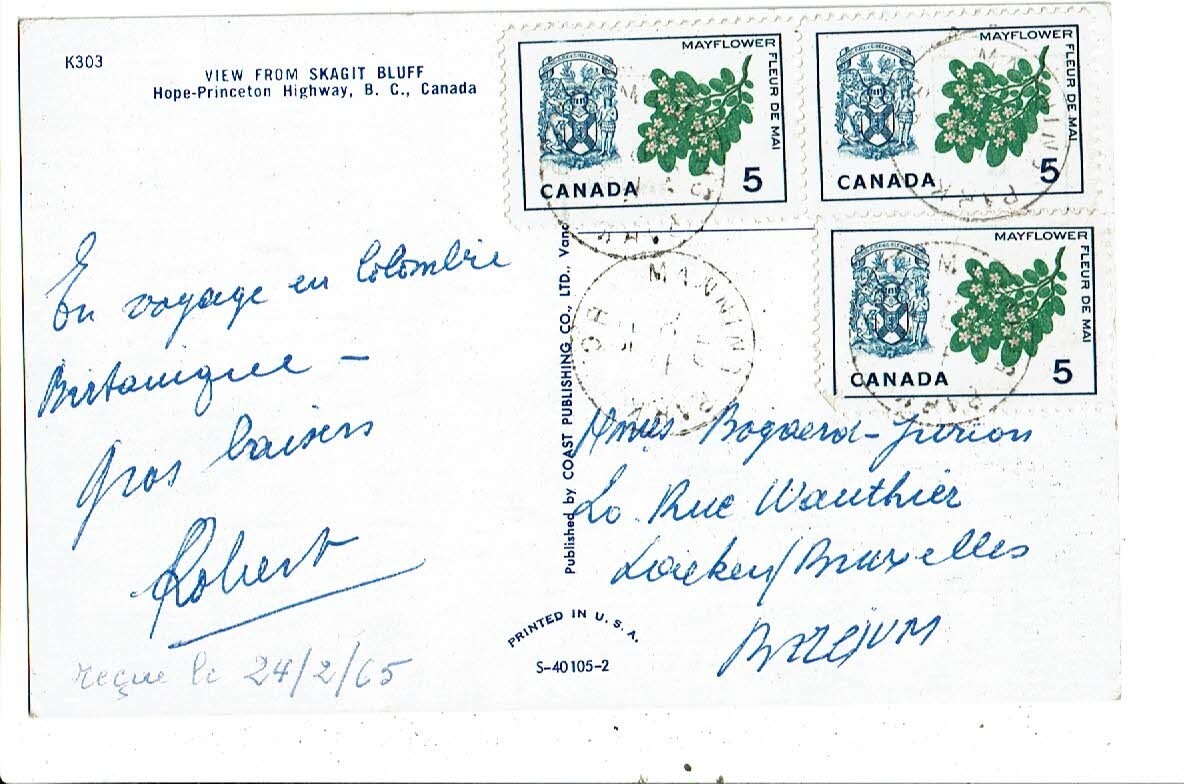 K303
VIEW FROM SKAGIT BLUFF
Hope-Princeton Highway, B. C., Canada
MAYFLOWER
FLEUR DE MAI
CANADA 5
MAYFLOWER
FLEUR DE MAI
CANADA 5
MAYFLOWER
FLEUR DE MAI
CANADA 5
MANNING PARK
En voyage en Colombie
Britanique –
Gros baisers
Robert
reçue le 24/2/65
Published by COAST PUBLISHING CO., LTD., Vanc
Bogaerd-
Rue Wauthier
Laeken/Bruxelles
BELGIUM
PRINTED IN U. S. A.
S-40105-2